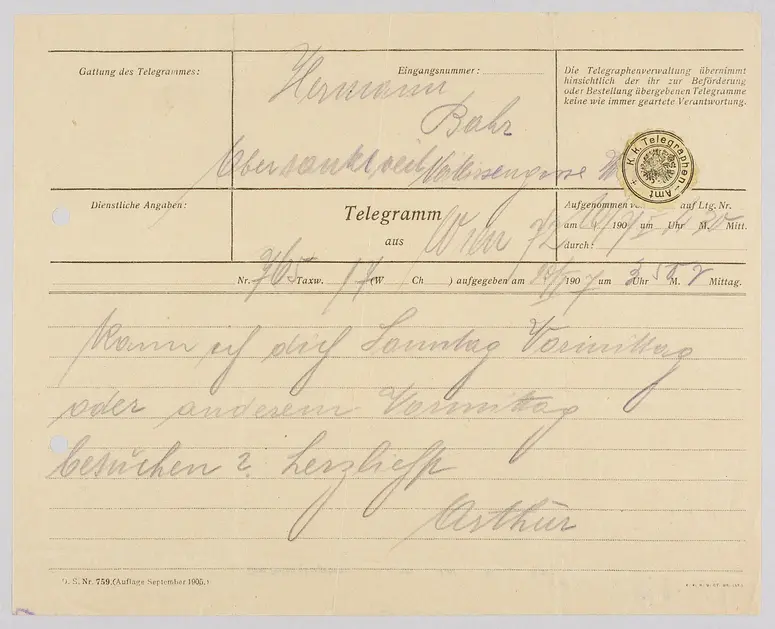 Gattung des Telegrammes:
Eingangsnummer:
Die Telegraphenverwaltung übernimmt
hinsichtlich der ihr zur Beförderung
oder Bestellung übergebenen Telegramme
keine wie immer geartete Verantwortung.
Hermann
Bahr
Obersanktveit
K. k. Telegraphen-Amt
Dienstliche Angaben:
Telegramm
aus Wien
Aufgenommen auf Ltg. Nr.
am 190 um Uhr 30 M. Mitt.
durch:
Nr. 765 Taxw. 17 (W Ch ) aufgegeben am 190 7 um 3 Uhr M. Mittag.
kann ich dich Sonntag Vormittag
oder anderem Vormittag
besuchen ? herzlichst
Arthur
D. S. Nr. 759. (Auflage September 1905.)